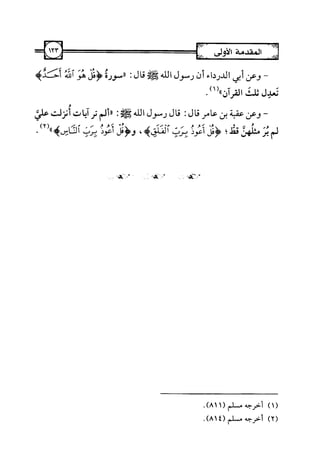 المقدمة الأولى ١٢٣
- وعن أبي الدرداء أن رسول الله ﷺ قال: «سورةُ ﴿قُلْ هُوَ ٱللَّهُ أَحَـدٌ﴾
تَعدِل ثلثَ القرآن»(١).
- وعن عقبة بن عامر قال: قال رسول الله ﷺ: «ألم تر آيات أُنزلت عليَّ
لم يُرَ مثلُهنَّ قطُّ؛ ﴿قُلْ أَعُوذُ بِرَبِّ ٱلْفَلَقِ﴾، و﴿قُلْ أَعُوذُ بِرَبِّ ٱلنَّاسِ﴾»(٢).
(١) أخرجه مسلم (٨١١).
(٢) أخرجه مسلم (٨١٤).